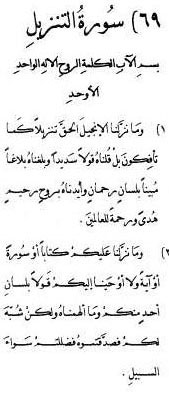 ٦٩) سُورَةُ التَّنْزِيلِ
بِسمِ الآبِ الكلمةِ الروحِ الإلهِ الواحدِ
الأوحدِ
(١) وَمَا نَزَّلْنَا الإِنْجِيلَ الحَقَّ تَنْزِيلاً كَمَا
تَأْفِكُونَ بَلْ قُلْنَاهُ قَوْلاً سَدِيدًا وَبَلَّغْنَاهُ بَلاَغًا
مُبِينًا بِلِسَانٍ رَحْمَانٍ وَأَيَّدْنَاهُ بِرُوحٍ رَحِيمٍ
هُدًى وَرَحْمَةً لِلعَالَمِينَ.
(٢) وَمَا نَزَّلْنَا عَلَيْكُمْ كِتَابًا أَوْ سُورَةً
أَوْ آيَةً وَلاَ أَوْحَيْنَا إِلَيْكُمْ قَوْلاً بِلِسَانِ
أَحَدٍ مِنْكُمْ وَمَا أَلْهَمْنَاهُ وَلكِنْ شُبِّهَ
لَكُمْ فَصَدَّقْتُمُوهُ فَضَلَلْتُمْ سَوَاءَ
السَّبِيلِ.